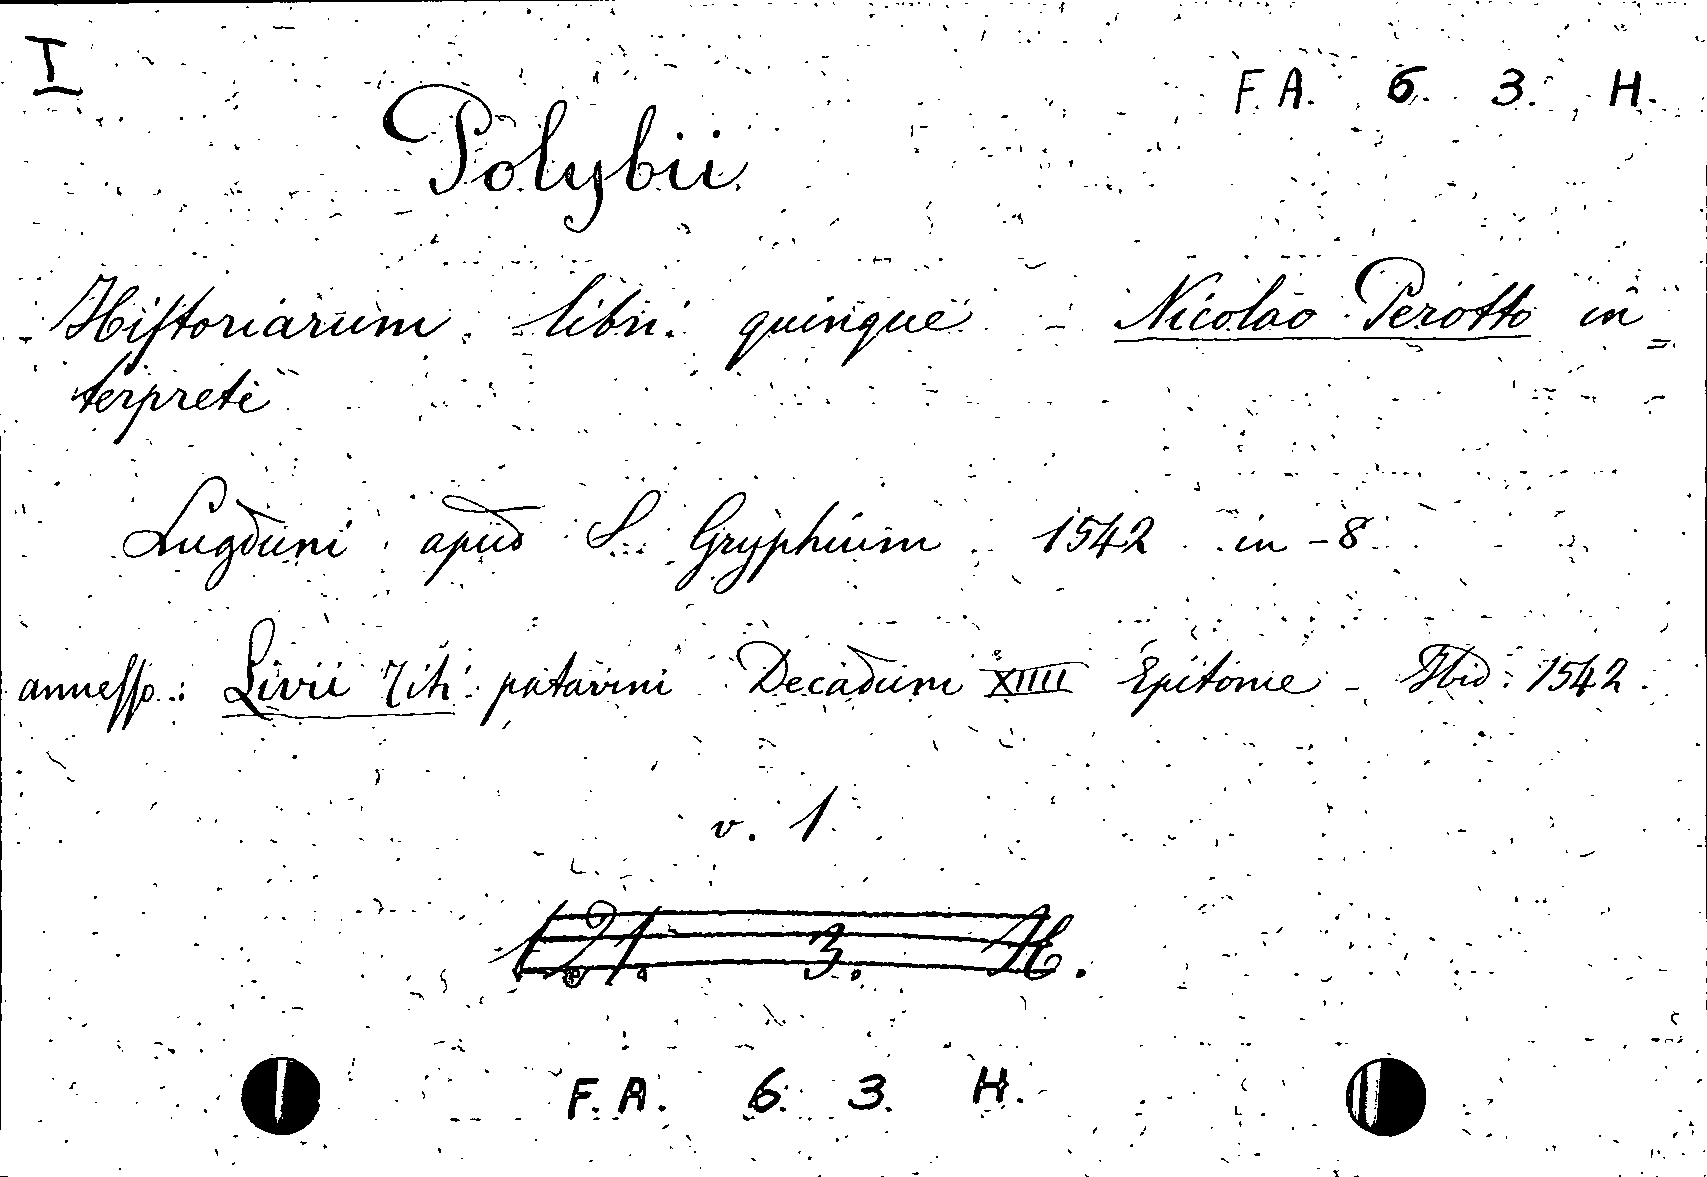 I
F. A. 6. 3. H.
Polybii
Historiarum libri quinque - Nicolao Perotto in=
terprete
Lugduni apud S. Gryphium 1542 in-8
annesso: Livii Titi patavini Decadum XIIII Epitome - Ibid. 1542.
v. 1.
121. 3. H.
F. A. 6. 3. H.